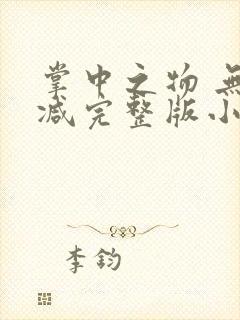 掌中之物 無
减完整版小
李鈞